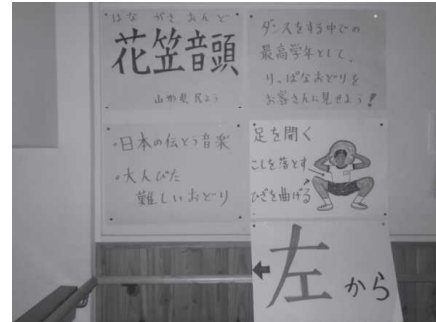 はながさおんど
花笠音頭
山形県民よう
ダンスをする中での
最高学年として、
りっぱなおどりを
お客さんに見せよう!
・日本の伝とう音楽
・大人びた
難しいおどり
足を開く
こしを落とす
ひざを曲げる
左から